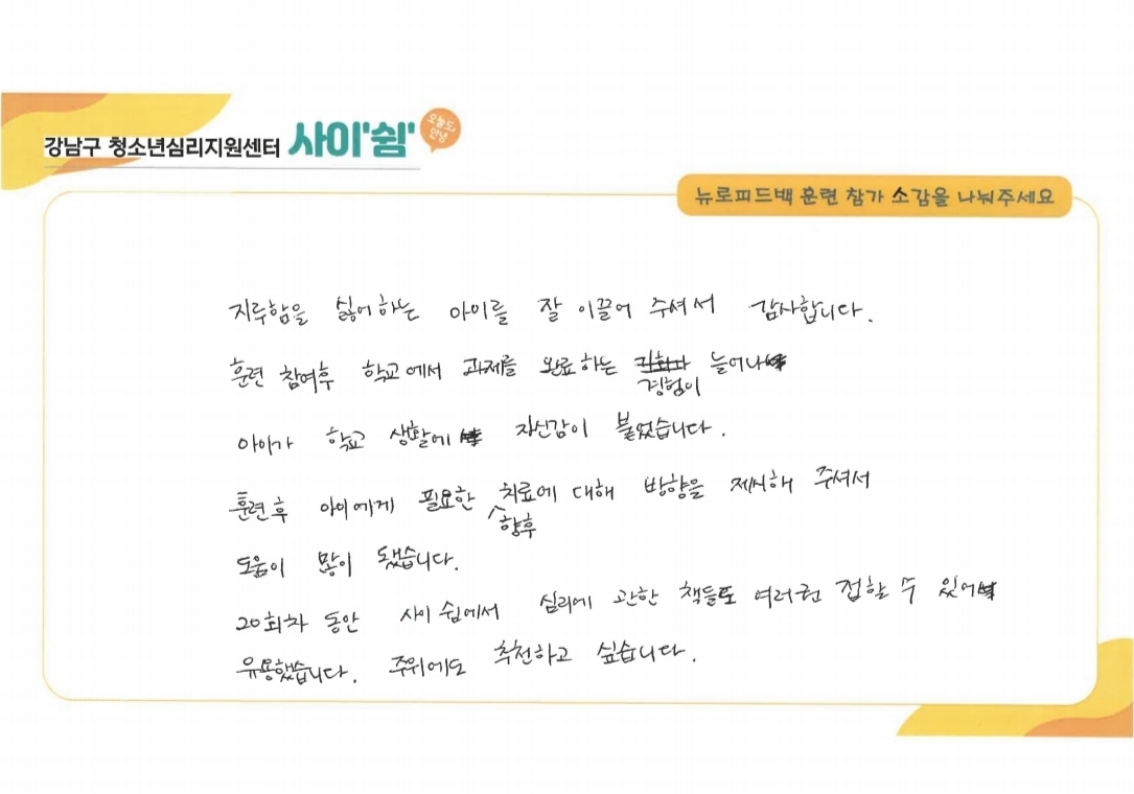 강남구 청소년심리지원센터 사이'쉼' 오늘도 안녕
뉴로피드백 훈련 참가 소감을 나눠주세요
지루함을 싫어하는 아이를 잘 이끌어 주셔서 감사합니다.
훈련 참여후 학교에서 과제를 완료하는 경험이 늘어나
아이가 학교 생활에 자신감이 붙었습니다.
훈련후 아이에게 필요한 향후 치료에 대해 방향을 제시해 주셔서
도움이 많이 됐습니다.
20회차 동안 사이쉼에서 심리에 관한 책들도 여러권 접할 수 있어
유용했습니다. 주위에도 추천하고 싶습니다.